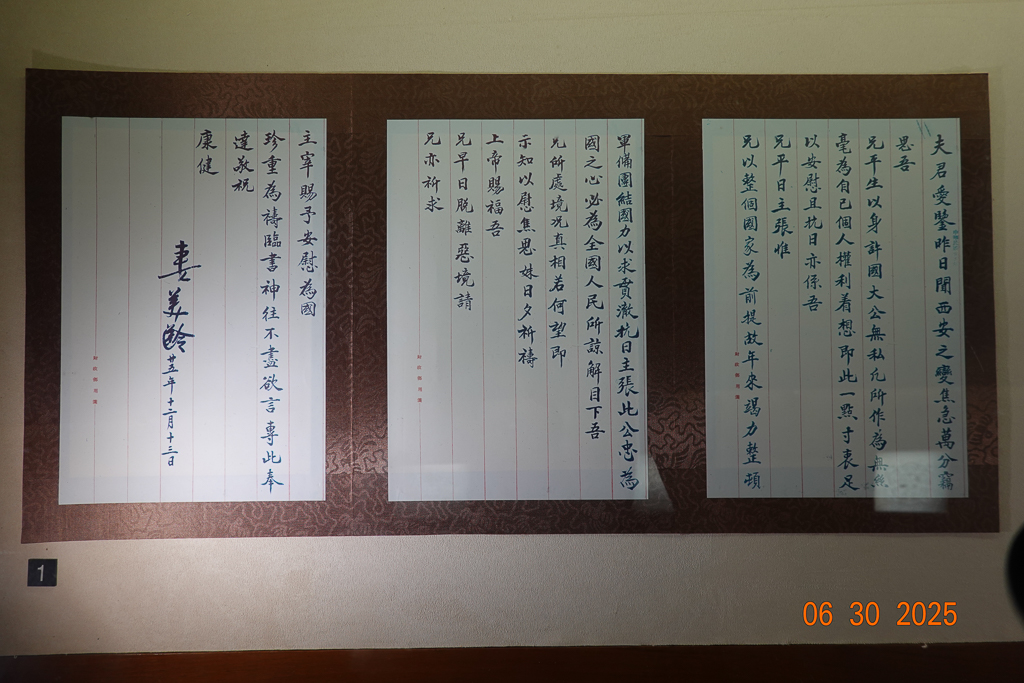 夫君愛鑒昨日聞西安之變焦急萬分竊
思吾
兄平生以身許國大公無私凡所作為無絲
毫為自己個人權利着想即此一點寸衷足
以安慰且抗日亦係吾
兄平日主張惟
兄以整個國家為前提故年來竭力整頓
軍備團結國力以求貫澈抗日主張此公忠為
國之心必為全國人民所諒解目下吾
兄所處境況真相若何望即
示知以慰焦思妹日夕祈禱
上帝賜福吾
兄早日脫離惡境請
兄亦祈求
主宰賜予安慰為國
珍重為禱臨書神往不盡欲言專此奉
達敬祝
康健
妻美齡 廿五年十二月十三日
1
06 30 2025